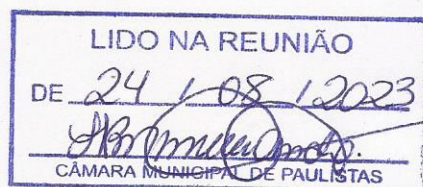 LIDO NA REUNIÃO
DE 24 / 08 / 2023
CÂMARA MUNICIPAL DE PAULISTAS